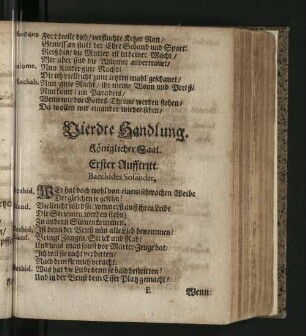 Fort trolle dich/ verfluchte Ketzer Rott/
Geniess an statt der Ehre Schand und Spott!
Reiß hin/ die Mutter ist in deiner Macht/
Mir aber sind die Würmer anvertrauet/
Nun Kinder gute Nacht!
Die ich vielleicht zum letzten mahl geschauet/
Nun gute Nacht/ ihr meine Wonn und Preiß/
Nun komt ins Paradeis/
Wenn wir vor Gottes Throne werden stehen/
Da wollen wir einander wieder sehen/
Vierdte Handlung.
Königlicher Saal.
Erster Aufftritt.
Bacchides Solander,
Bachid. Wer hat doch wohl von einem schwachen Weibe
Dergleichen je gesehn?
Vielleicht wird sie, wenn erst auff ihren Leibe
Die
Zu andern Sinnen kommen.
Bachid. Ist denn der Brust nun alle Lieb benommen?
Bringt Zangen/ Strick und Rad/
Und was man sonst vor Marter-Zeuge hat:
Ich will sie nicht verbitten/
Nach dem sie mich veracht.
Bachid. Was hat die Liebe denn so bald bestritten/
Und in der Brust dem Eifer Platz gemacht/
E
Wenn